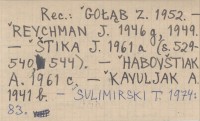 Rec.: – GOŁĄB Z. 1952. –
– REYCHMAN J. 1946 g, 1949.
– ŠTIKA J. 1961 a (s. 529-
540, 544). – HABOVŠTIAK
A. 1961 c. – KAVULJAK A.
1941 b. – SULIMIRSKI T. 1974:
83.